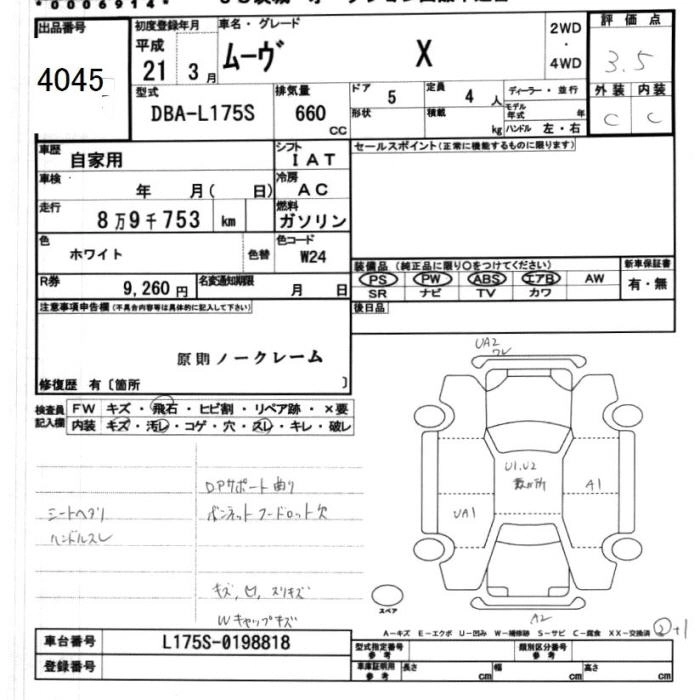 *0006914*
出品番号
4045
初度登録年月
平成
21 3 月
車名・グレード
ムーヴ X
2WD
・
4WD
評価点
3.5
外装 内装
C C
型式
DBA-L175S
排気量
660
CC
ドア 5
定員 4 人
形状
積載 kg
ディーラー・並行
モデル年式 年
ハンドル 左・右
車歴
自家用
シフト
IAT
車検
年 月( 日)
冷房
AC
走行
8万9千753 km
燃料
ガソリン
色
ホワイト
色替
色コード
W24
R券
9,260円
名変通知期限
月 日
セールスポイント(正常に機能するものに限ります)
装備品(純正品に限り〇をつけてください)
新車保証書
PS PW ABS エアB AW
SR ナビ TV カワ
有・無
後日品
注意事項申告欄(不具合内容等は具体的に記入して下さい)
原則ノークレーム
修復歴 有〔箇所 〕
検査員
記入欄
FW キズ・飛石・ヒビ割・リペア跡・×要
内装 キズ・汚レ・コゲ・穴・スレ・キレ・破レ
DPサポート曲り
シートヘタリ ボンネットフードロット欠
ハンドルスレ
キズ,凹,スリキズ
Wキャップキズ
UA2
ワレ
U1.U2
数か所
A1
UA1
A2
スペア
A-キズ E-エクボ U-凹み W-補修跡 S-サビ C-腐食 XX-交換済
②+1
車台番号
L175S-0198818
登録番号
型式指定番号
参考
類別区分番号
参考
車庫証明用
参考
長さ cm
幅 cm
高さ cm